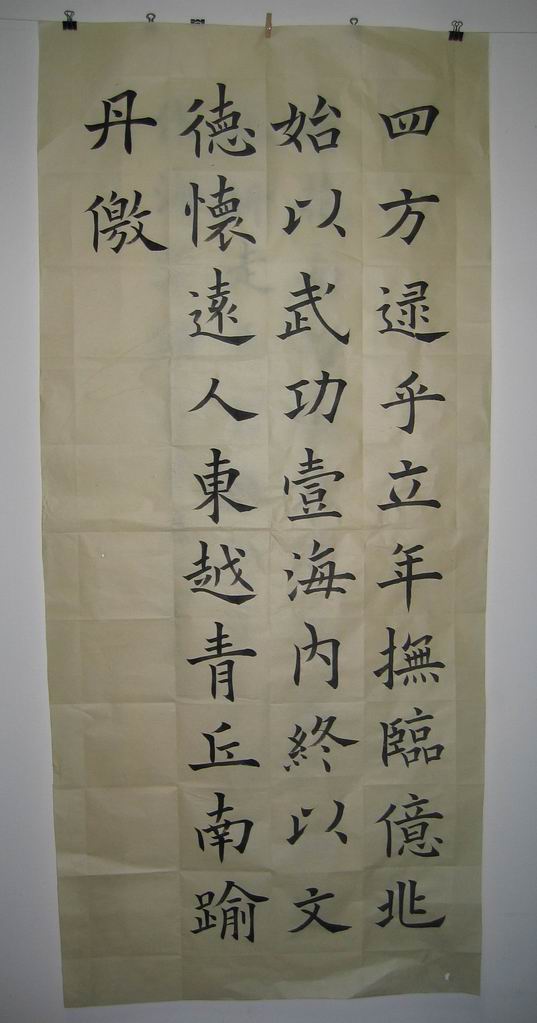 四方逯乎立年撫臨億兆
始以武功壹海内終以文
德懷遠人東越青丘南踰
丹儌